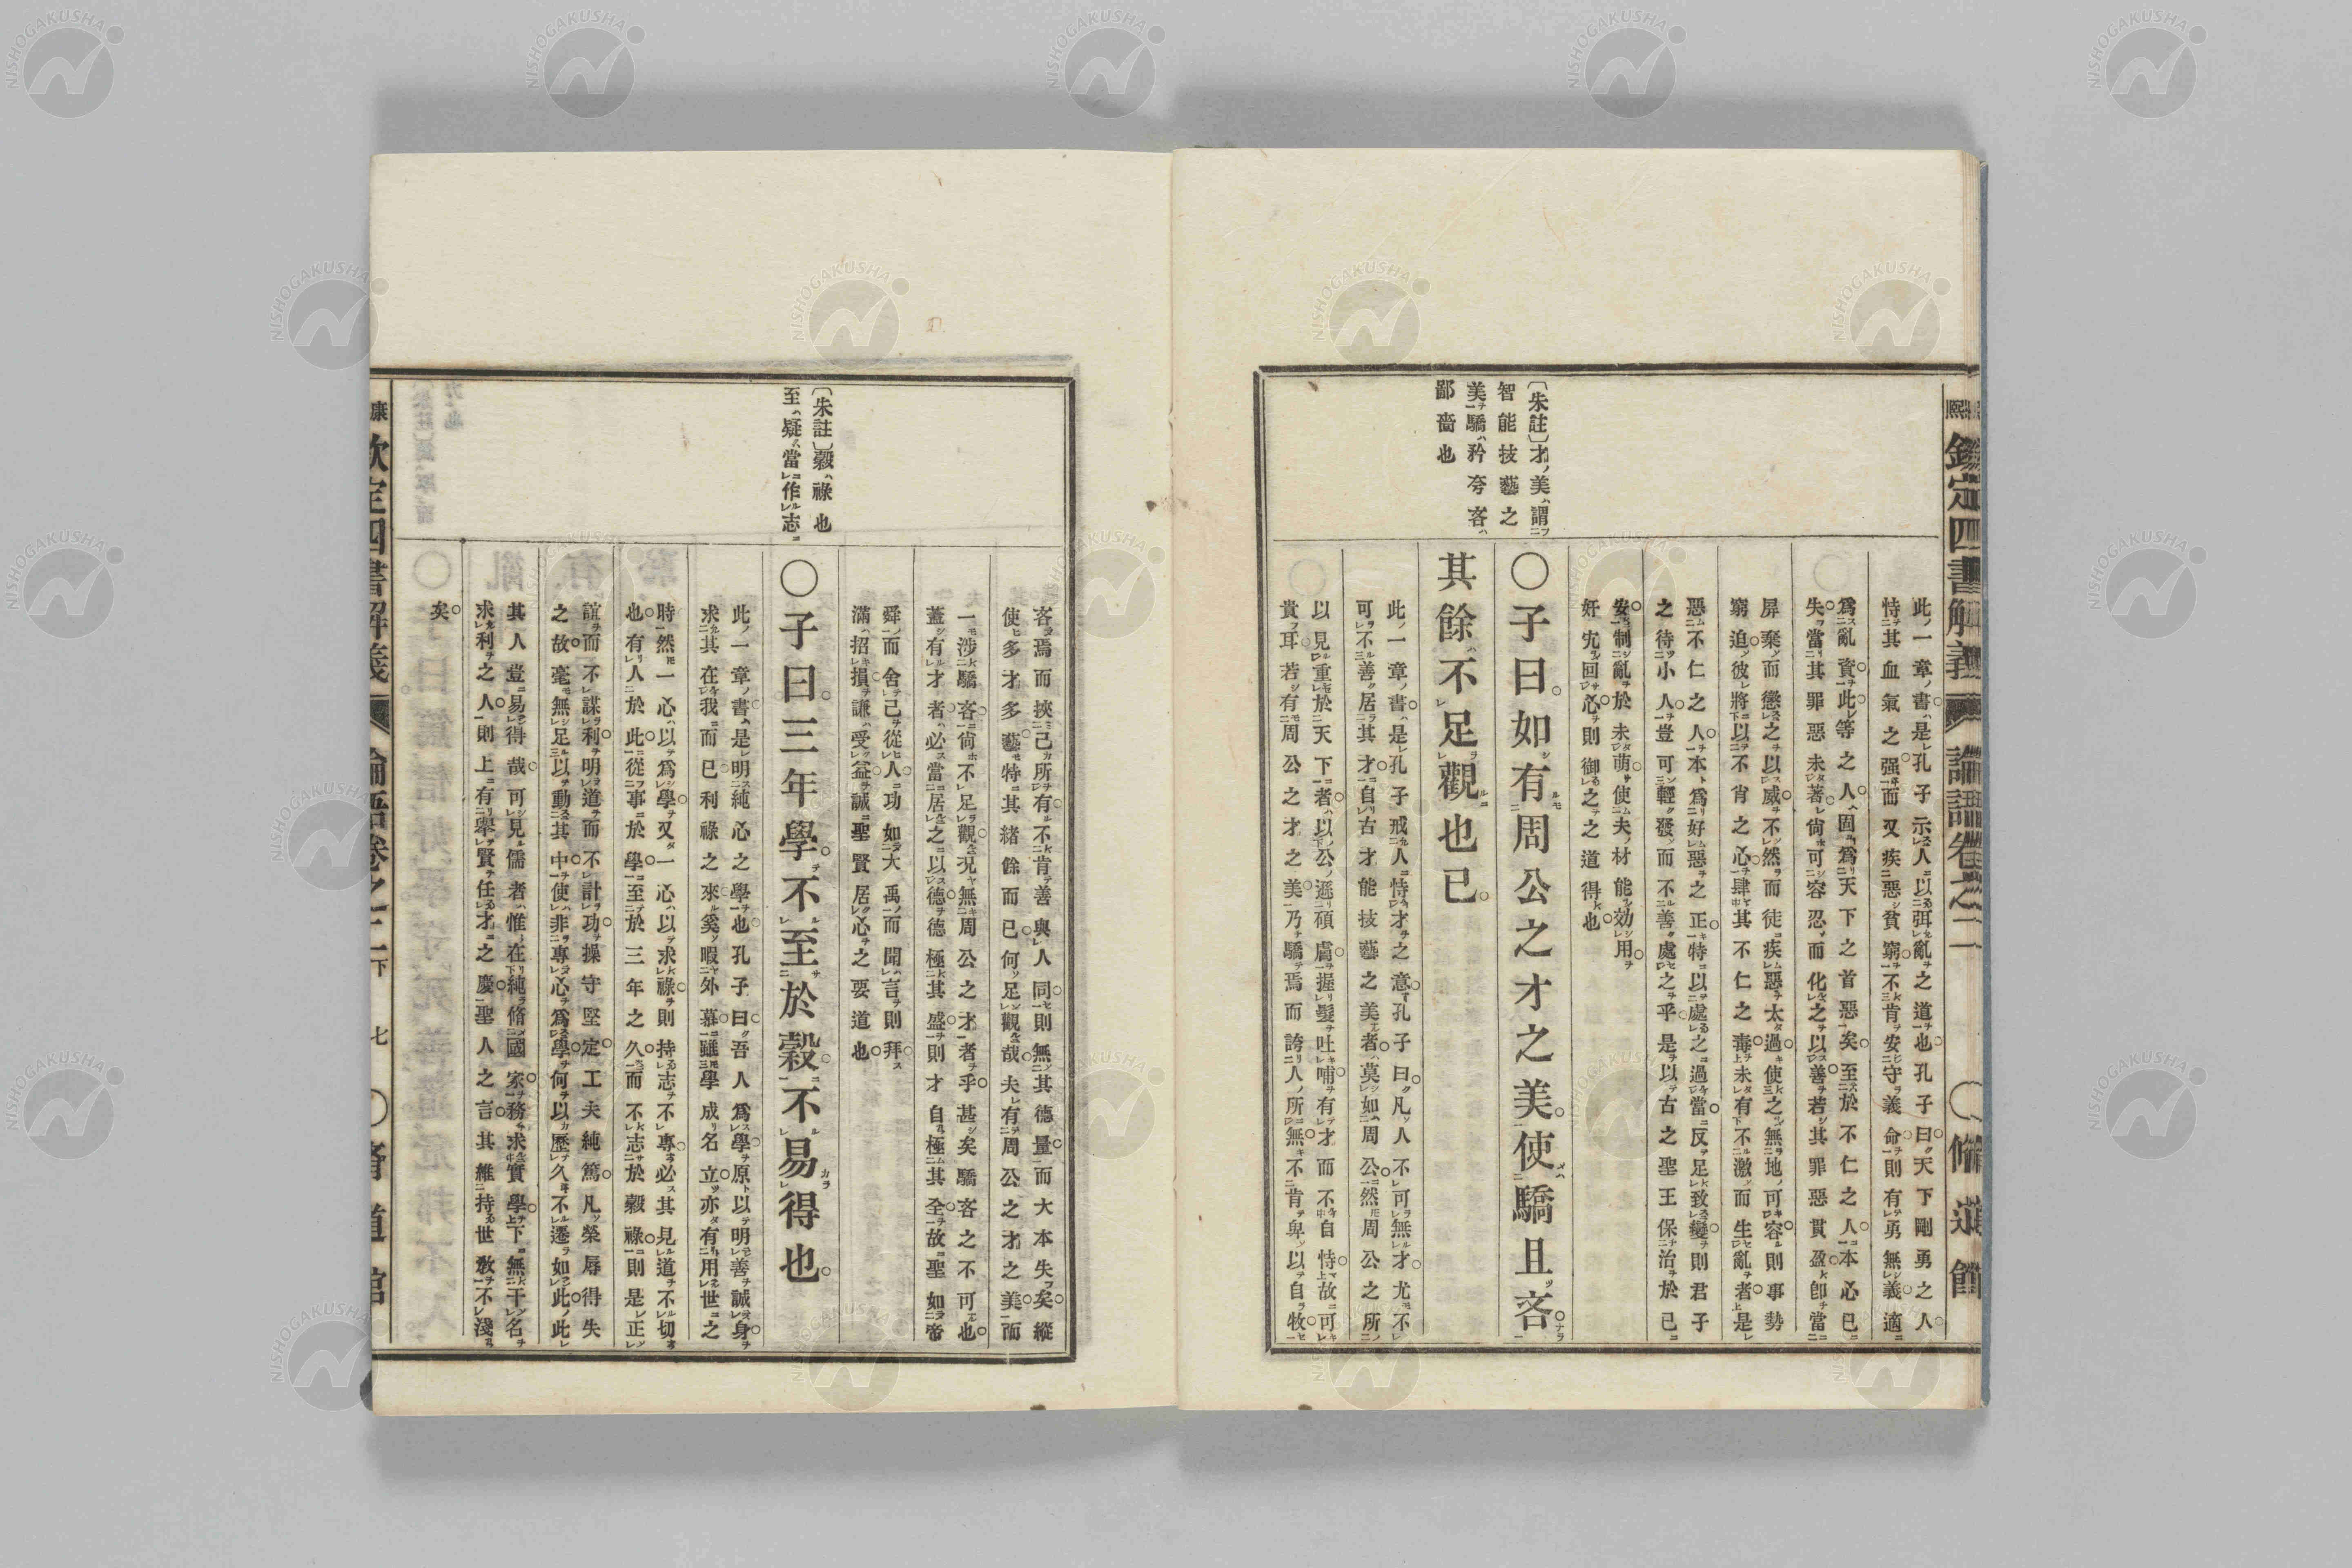 此一章書是孔子示人以弭亂之道也孔子曰天下剛勇之人
恃其血氣之强而又疾惡貧窮不肯安守義命則有勇無義適
爲亂資此等之人固爲天下之首惡矣至於不仁之人本心已
失當其罪惡未著尙可容忍而化之以善若其罪惡貫盈卽當
屏棄而懲之以威不然而徒疾惡太過使之無地可容則事勢
窮迫彼將以不肯之心肆其不仁之毒未有不激而生亂者是
惡不仁之人本爲好惡之正特以處之過當反足致變則君子
之待小人豈可輕發而不善處之乎是以古之聖王保治於已
安制亂於未萌使夫材能効用
奸宄回心則御之之道得也
〔朱註〕才ノ美ハ謂フ
智能技藝之
美ヲ驕ハ矜夸吝ハ
鄙嗇也
〇子曰如有周公之才之美使驕且吝
其餘不足觀也已
此一章書是孔子戒人恃才之意孔子曰凡人不可無才尤不
可不善居其才自古才能技藝之美者莫如周公然周公之所
以見重於天下者以公遜碩膚握髮吐哺有才而不自恃故可
貴耳若有周公之才之美乃驕焉而誇人所無不肯卑以自牧
吝焉而挾己所有不肯善與人同則無其德量而大本失矣縱
使多才多藝特其緖餘而已何足觀哉夫有周公之才之美而
一涉驕吝尙不足觀况無周公之才者乎甚矣驕吝之不可也
蓋有才者必當居之以德德極其盛則才自極其全故聖如帝
舜而舍己從人功如大禹而聞言則拜
滿招損謙受益誠聖賢居心之要道也
〔朱註〕穀ハ祿也
至ハ疑當作志
〇子曰三年學不至於穀不易得也
此一章書是明純心之學也孔子曰吾人爲學原以明善誠身
求其在我而已利祿之來奚暇外慕雖學成名立亦有用世之
時然一心以爲學又一心以求祿則持志不專必其見道不切
也有人於此從事於學至於三年之久而不志於穀祿則是正
誼而不謀利明道而不計功操守堅定工夫純篤凡榮辱得失
之故毫無足以動其中使非專心爲學何以歷久不遷如此此
其人豈易得哉可見儒者惟在純脩國家務求實學下無干名
求利之人則上有舉賢任才之慶聖人之言其維持世敎不淺
矣
欽定四書解義 論語卷之二下 七 〇脩道館